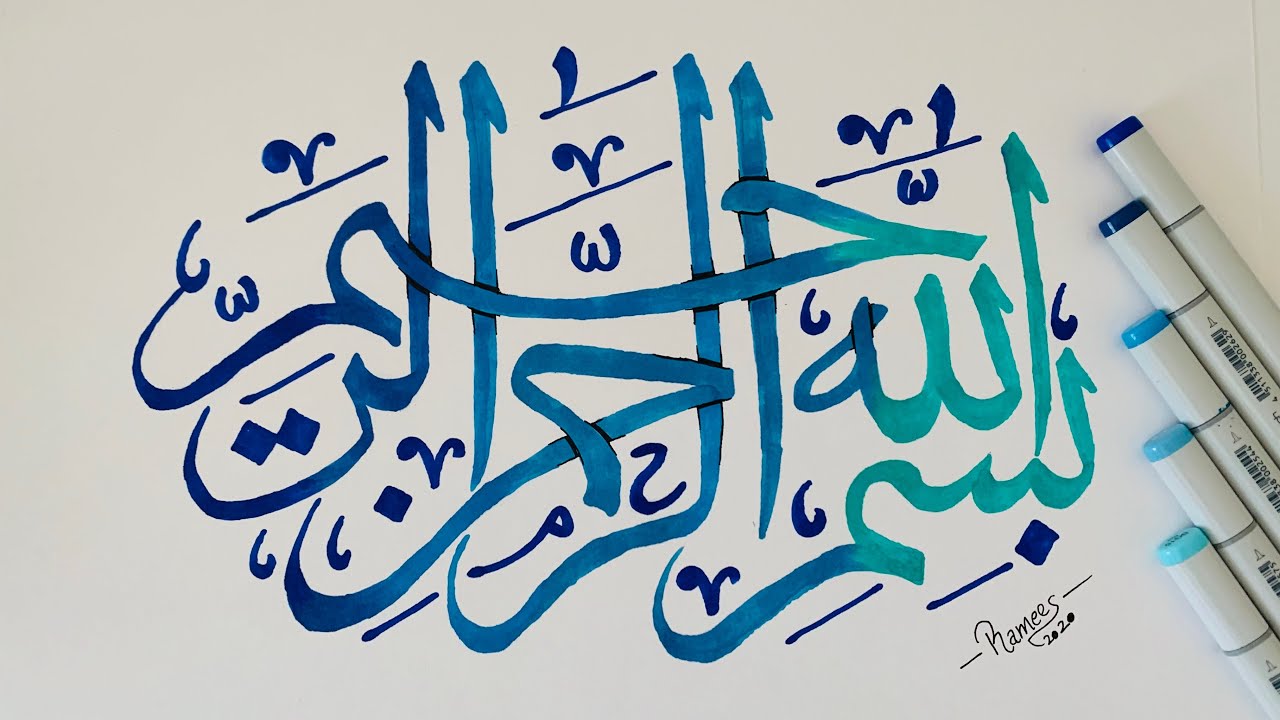 بِسْمِ اللَّهِ الرَّحْمَٰنِ الرَّحِيمِ
Ramees
2020